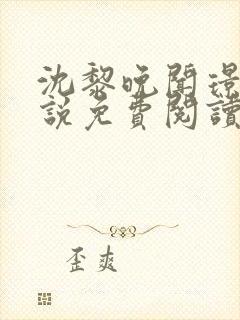 沈黎晚聞璟
說免費閱讀
歪爽